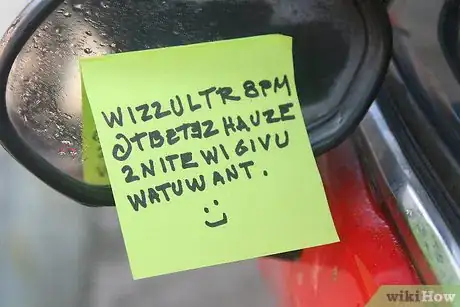 WIZZULTR 8PM
@TBETEZ HAUZE
2NITE WI GIVU
WATUWANT.
:)
wikiHow